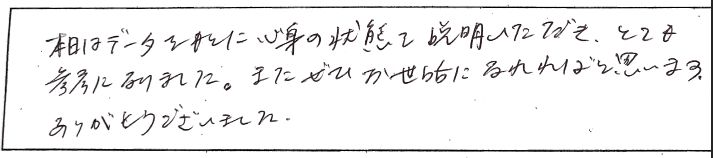 本日はデータをもとに心身の状態を説明いただき、とても
参考になりました。またぜひお世話になれればと思います。
ありがとうございました。